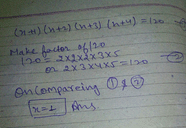 (x+1)(x+2)(x+3)(x+4)=120 —①
Make factor of 120
120 = 2x2x2x3x5
or 2x3x4x5 = 120 —②
On Compareing ① & ②
x=1 Ans